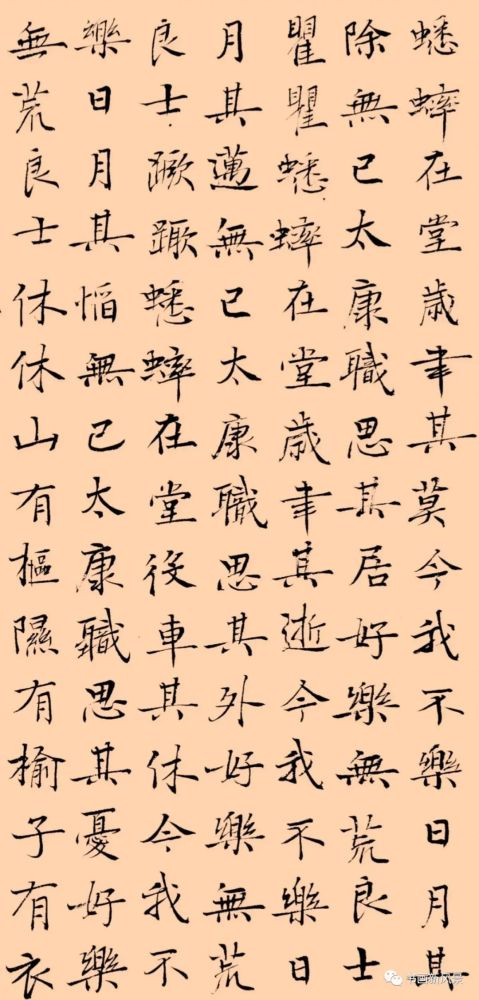 蟋蟀在堂歲聿其莫今我不樂日月其
除無已太康職思其居好樂無荒良士
瞿瞿蟋蟀在堂歲聿其逝今我不樂日
月其邁無已太康職思其外好樂無荒
良士蹶蹶蟋蟀在堂役車其休今我不
樂日月其慆無已太康職思其憂好樂
無荒良士休休山有樞隰有榆子有衣
书画新风景